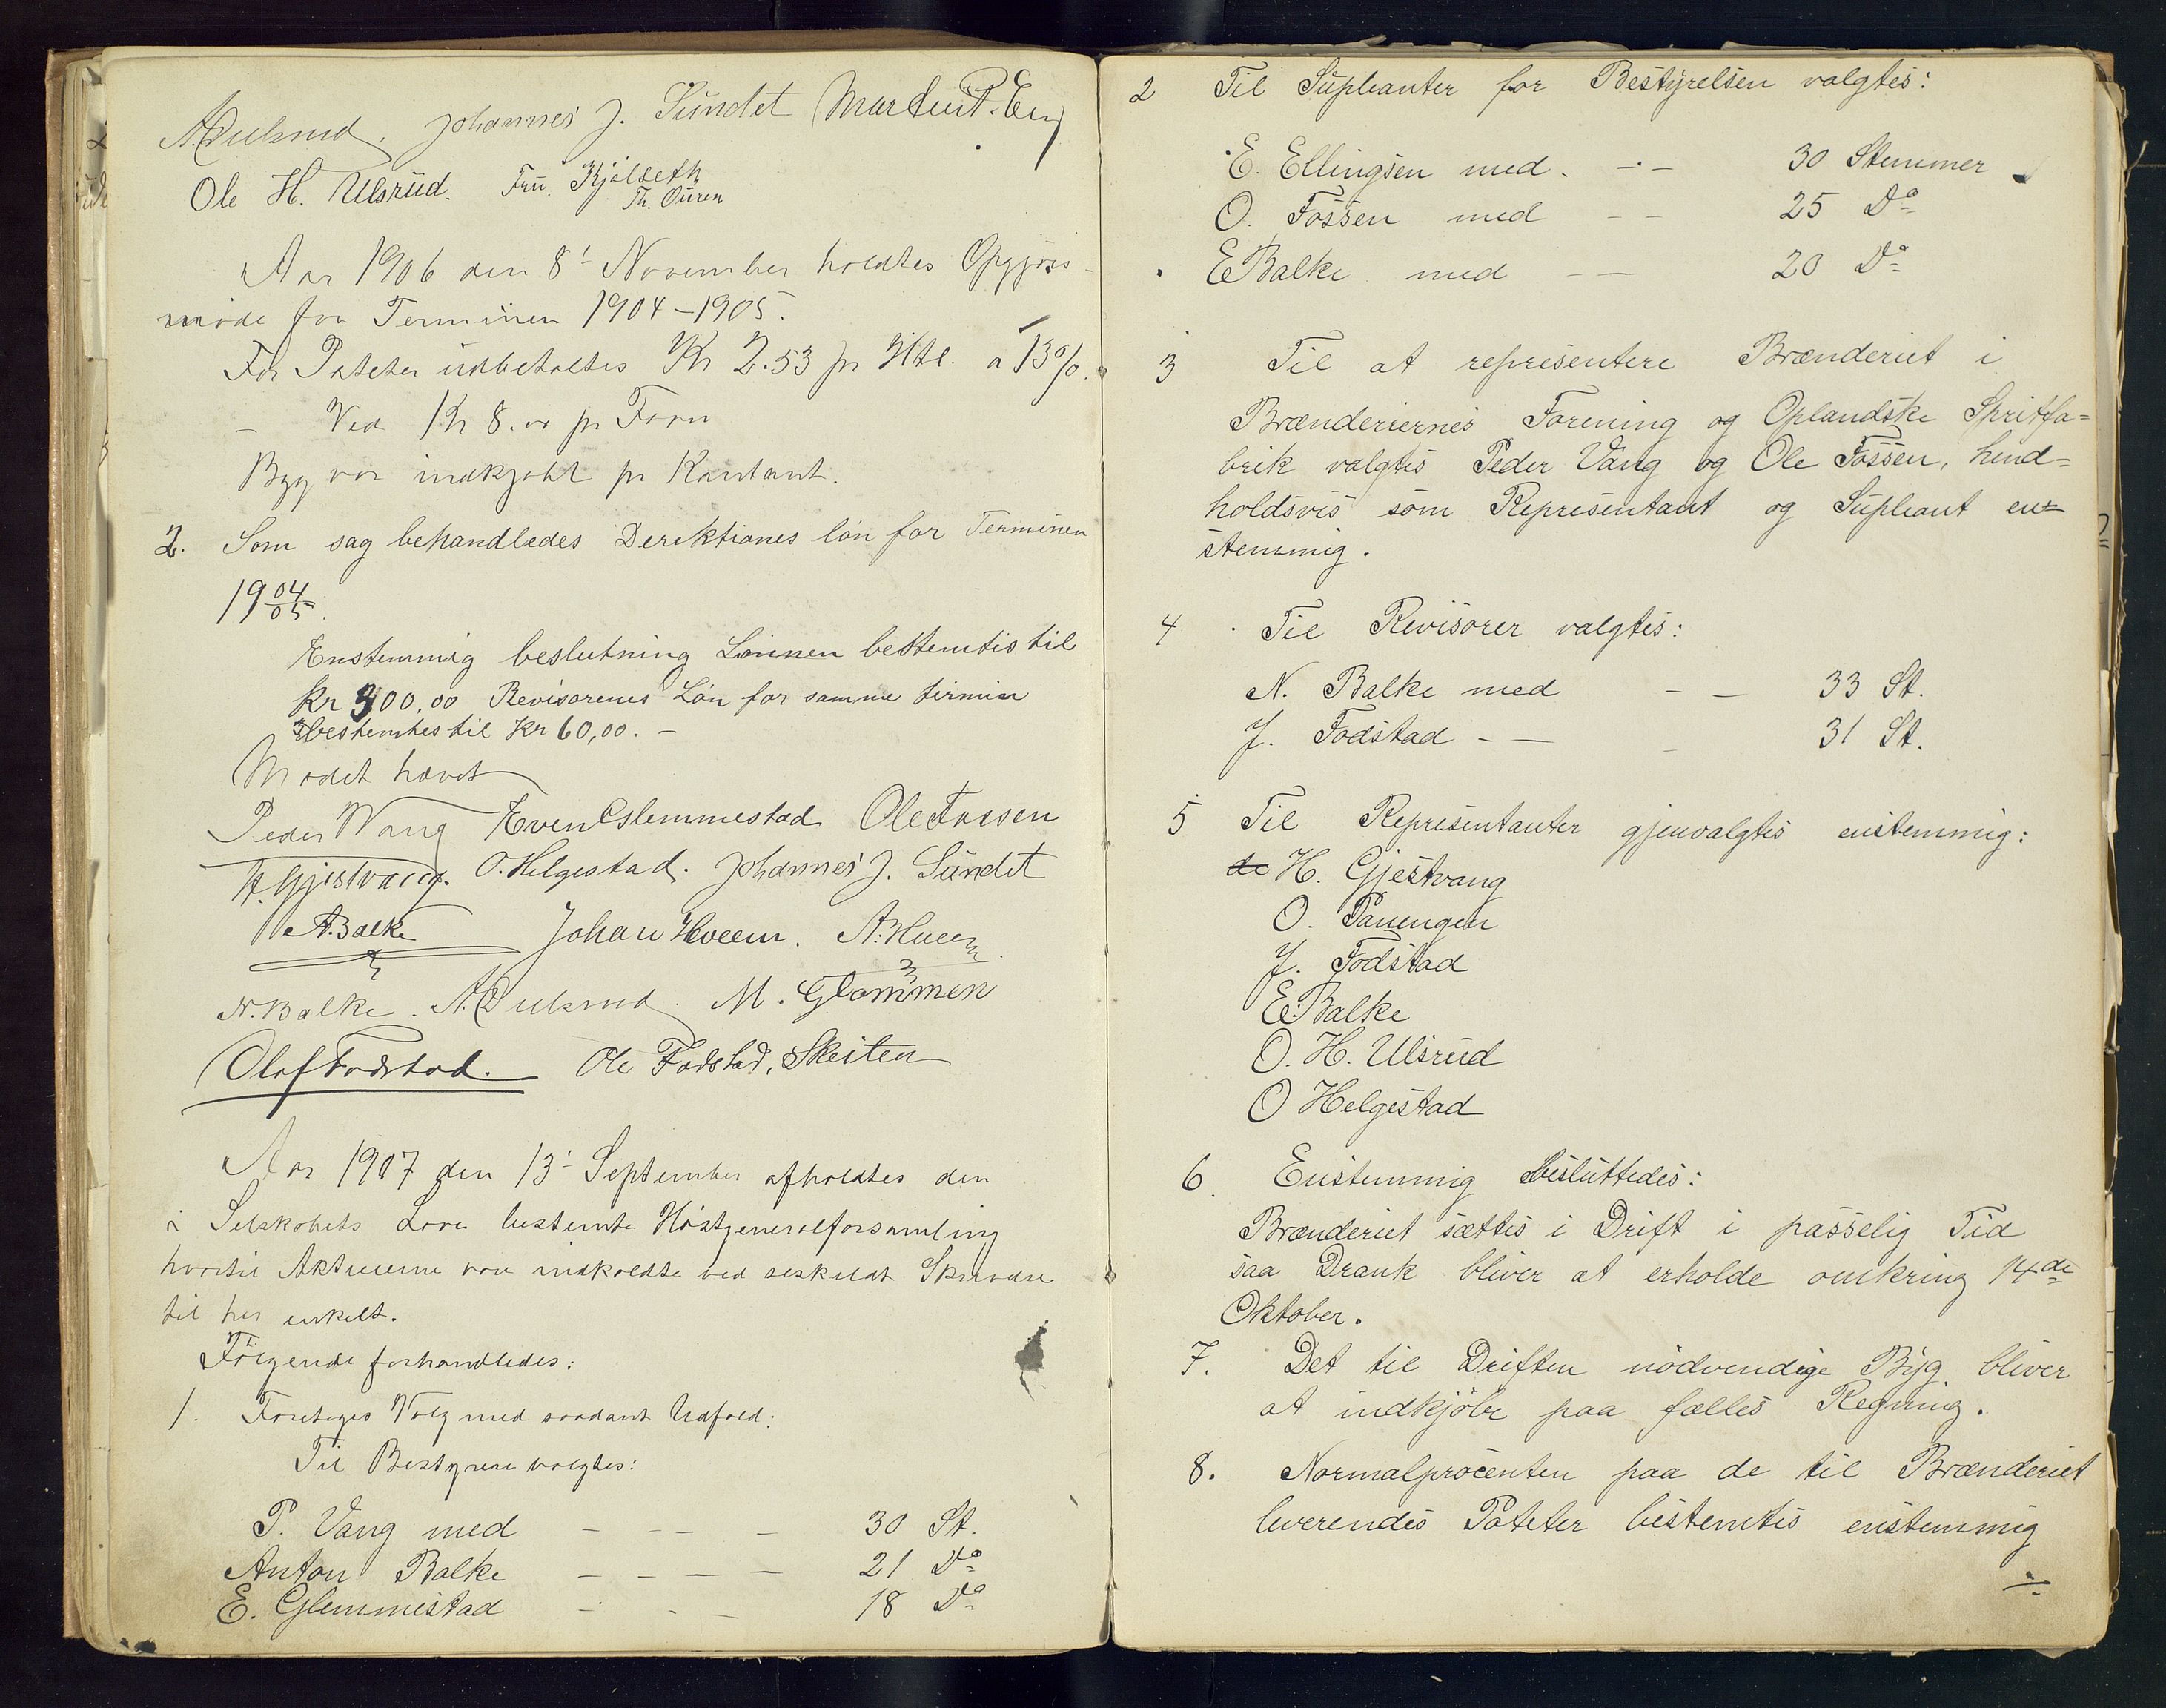 A. Hulsrud. Johannes J. Sundet Martin P. Eng
Ole H. Ulsrud. Fru. Kjölseth
Th. Ouren
Aar 1906 den 8' November holdtes Opgjörs-
möde for Terminen 1904-1905.
For Poteter udbetaltes Kr 2.53 pr Hkl. a 13%.
- Ved Kr 8.00 pr Favn
Byg var indkjøbt pr Kontant.
2. Som sag behandledes Derektiones lön for Terminen
19 04/05.
Enstemmig beslutning Lönnen bestemtes til
Kr 300,00 Revisorenes Lön for samme termin
bestemtes til Kr 60,00. -
Mødet hævet
Peder Wang Even Glemmestad Ole Fossen
H. Gjestvang. O. Helgestad. Johannes J. Sundet
A. Balke Johan Hveem. A. Hveem
N. Balke. A. Hulsrud. M. Glommen
Olaf Fodstad. Ole Fodstad, Skeiten
Aar 1907 den 13' September afholdtes den
i Selskabets Love bestemte Höstgeneralforsamling
hvortil Aktieeierne var indkaldte ved seskildt Skrivelse
til hver enkelt.
Fölgende forhandledes:
1. Foretoges Valg med saadant Udfald:
Til Bestyrere valgtes:
P. Vang med - - - - 30 St.
Anton Balke - - - - 21 Do
E. Glemmestad - - - 18 Do
2 Til Supleanter for Bestyrelsen valgtes:
E. Ellingsen med. - - 30 Stemmer
O. Fossen med - - 25 Do
E Balke med - - 20 Do
3 Til at representere Brænderiet i
Brænderiernes Forening og Oplandske Spritfa=
brik valgtes Peder Vang og Ole Fossen, hend=
holdsvis som Representant og Supleant en=
stemmig.
4 Til Revisorer valgtes:
N. Balke med - - 33 St.
J. Fodstad - - - 31 St.
5 Til Representanter gjenvalgtes enstemmig:
de H. Gjestvang
O. Panengen
J. Fodstad
E. Balke
O. H. Ulsrud
O Helgestad
6. Enstemmig besluttedes:
Brænderiet sættes i Drift i passelig Tid
saa Drank bliver at erholde omkring 14de
Oktober.
7. Det til Driften nödvendige Byg bliver
at indkjöbe paa fælles Regning.
8. Normalprocenten paa de til Brænderiet
leverendes Poteter bestemtes enstemmig